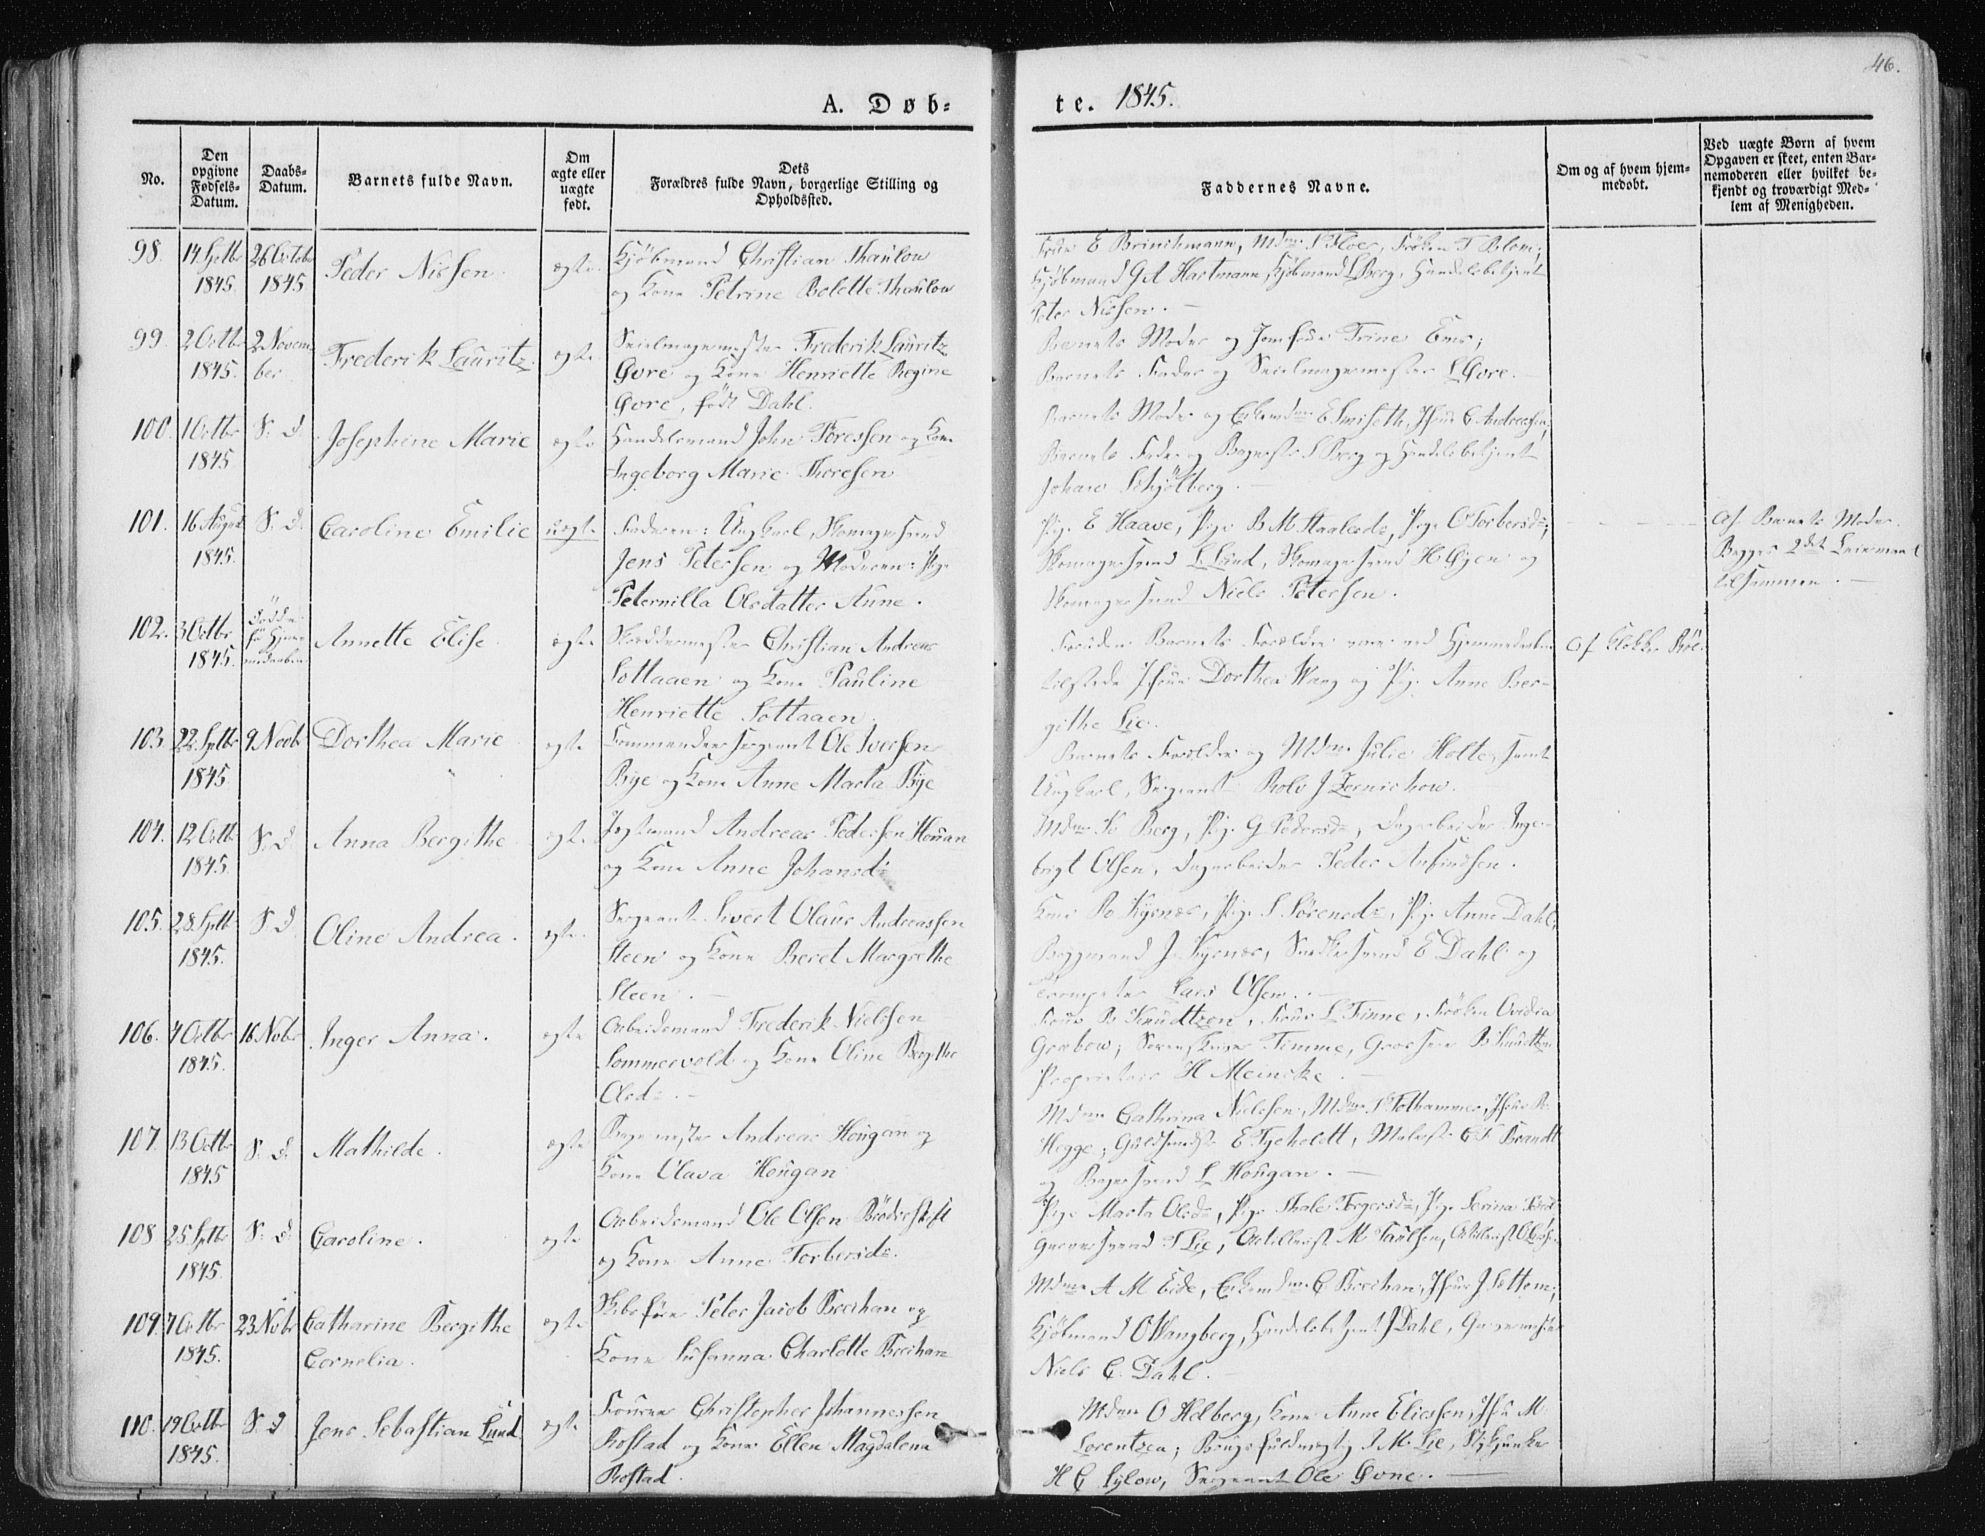 46.
A. Døb-
te. 1845.
No.
Den opgivne Fødsels-Datum.
Daabs-Datum.
Barnets fulde Navn.
Om ægte eller uægte født.
Dets
Forældres fulde Navn, borgerlige Stilling og
Opholdssted.
Faddernes Navne.
Om og af hvem hjem-
medøbt.
Ved uægte Børn af hvem
Opgaven er skeet, enten Bar-
nemoderen eller hvilket be-
kjendt og troværdigt Med-
lem af Menigheden.
98. 14 Septbr 26 Octobr
1845. 1845
Peder Nissen
ægte
Kjöbmand Christian Thaulow
og Kone Petrine Bolette Thaulow
Kjöbmand G A Hartmann Kjöbmand L Berg, Handelsbetjent
Peter Nissen.
99. 2 Octbr 2 Novem-
1845. ber
Frederik Lauritz
ægte
Seilmagermester Frederik Lauritz
Gvre og Kone Henriette Regine
Gvre, født Dahl.
Barnets Moder og Jomfrue Trine
Barnets Fader og Seilmagermester L Gvre.
100. 1 Octbr S. D.
1845
Josephine Marie
ægte
Handelsmand John Toressen og Kone
Ingeborg Marie Thoresen
Barnets Moder og
Barnets Fader og S Berg og Handelsbetjent
Johan Schjölberg.
101. 16 August S. D.
1845.
Caroline Emilie
uægte
Faderen: Ungkarl, Skomagersvend
Jens Petersen og Moderen: Pige
Peternilla Olsdatter Aune.
Pige E Haave, Pige B M
Skomagersvend L Lund, Skomagersvend og
Skomagersvend Niels Petersen.
Af Barnets Moder.
Begges 2det Leiermaal
tilsammen.
102. 3 Octbr
1845.
Annette Elise
ægte
Skræddermester Christian Andreas
Sottaaen og Kone Pauline
Henriette Sottaaen.
Foruden Barnets Forældre vare ved Hjemmedaaben
tilstede Jfrue Dorthea Wang og Pige Anne Ber-
githe Lie.
Af Klokker
103. 22 Septbr 9 Novbr
1845
Dorthea Marie
ægte
Commandeersergeant Ole Iversen
Bye og Kone Anne Marta Bye
Barnets Forældre og Mdme Julie Holte, samt
Ungkarl, Sergeant Rolv J
104. 12 Octbr S. D.
1845.
Anna Bergithe
ægte
Andreas Pedersen Houan
og Kone Anne Johansdr
Mdme Berg, Pige G Pedersdr, Dagarbeider Inge-
brigt Olsen, Dagarbeider Peder
105. 28 Septb S. D
1845.
Oline Andrea.
ægte.
Sergeant Sivert Olaus Andreassen
Steen og Kone Beret Margrethe
Steen.
Pige S Sörensdr, Pige Anne Dahl,
Snedkersvend E Dahl og
Trompeter Lars Olsen.
106. 7 Octbr 16 Novbr
1845.
Inger Anna.
ægte
Arbeidsmand Frederik Nielsen
Sommervold og Kone Oline Bergithe
Olsdr.
Frue B Knudtzon, Frue L Finne, Frøken Ovidia
Grabow; Sorenskriver Timme, Grosserer B Knudtzon
Proprietair H Meincke.
107. 13 Octbr S. D.
1845
Mathilde.
ægte
Bagermester Andreas Hougan og
Kone Olava Hougan
Mdme Cathrina Nielsen, Mdme
Hegge; Guldsmedsv E Maler C F Brandt
og Bagersvend L Hougan.
108 25 Septbr S. D
1845.
Caroline.
ægte
Arbeidsmand Ole Olsen Brödreskift
og Kone Anne Torbersdr.
Pige Marta Olsdr, Pige Thale Torgersdr, Pige Serina
Garversvend T Lie, Artillerist M Paulsen, Artillerist
109. 7 Octbr 23 Novbr
1845.
Catharine Bergithe
Cornelia.
ægte
Skibsfører Peter Jacob Breehan og
Kone Susanna Charlotte Breehan
Mdme A M Eide, Enkemdme C Breehan, Jfrue J Sottem;
Kjöbmand O Wangberg, Handelsbetjent J Dahl,
Niels C. Dahl.
110. 19 Octbr S. D
1845.
Jens Sebastian Lund
ægte
Christopher Johannessen
Rostad og Kone Ellen Magdalena
Rostad.
Mdme O Helberg, Kone Anne Eliessen, Jfru M.
Lorentzen; J M Lie,
H C Lylow, Sergeant Ole Gvne.